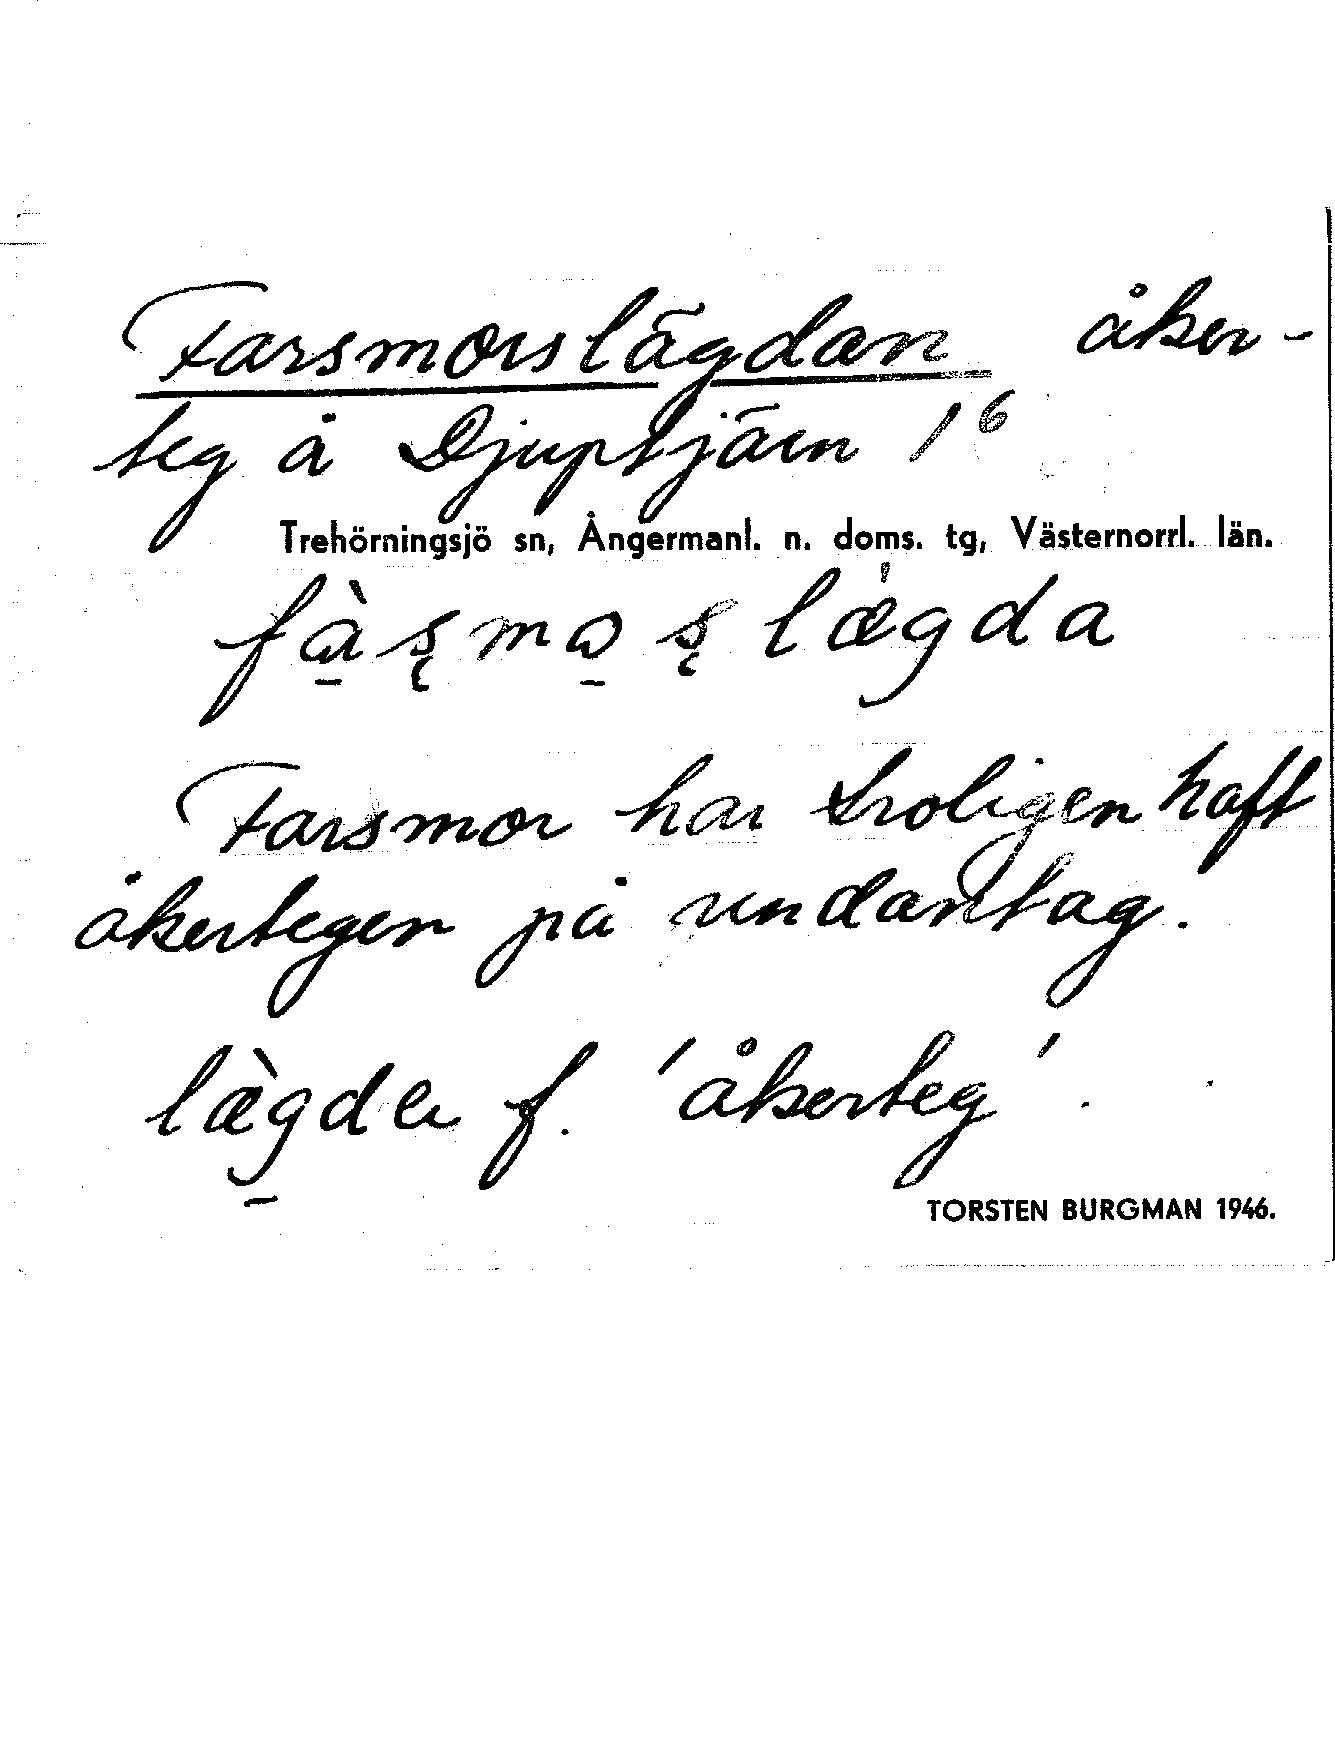 Farsmorslägdan åker-
teg å Djuptjärn 1⁶
Trehörningsjö sn, Ångermanl. n. doms. tg, Västernorrl. län.
fà̱ʂmω̱ʂlǽgda
Farsmor har troligen haft
åkertegen på undantag.
læ̀g̱da f. 'åkerteg'.
TORSTEN BURGMAN 1946.